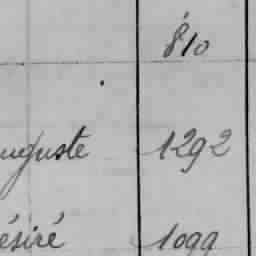 810
auguste 1292
ésiré 1099